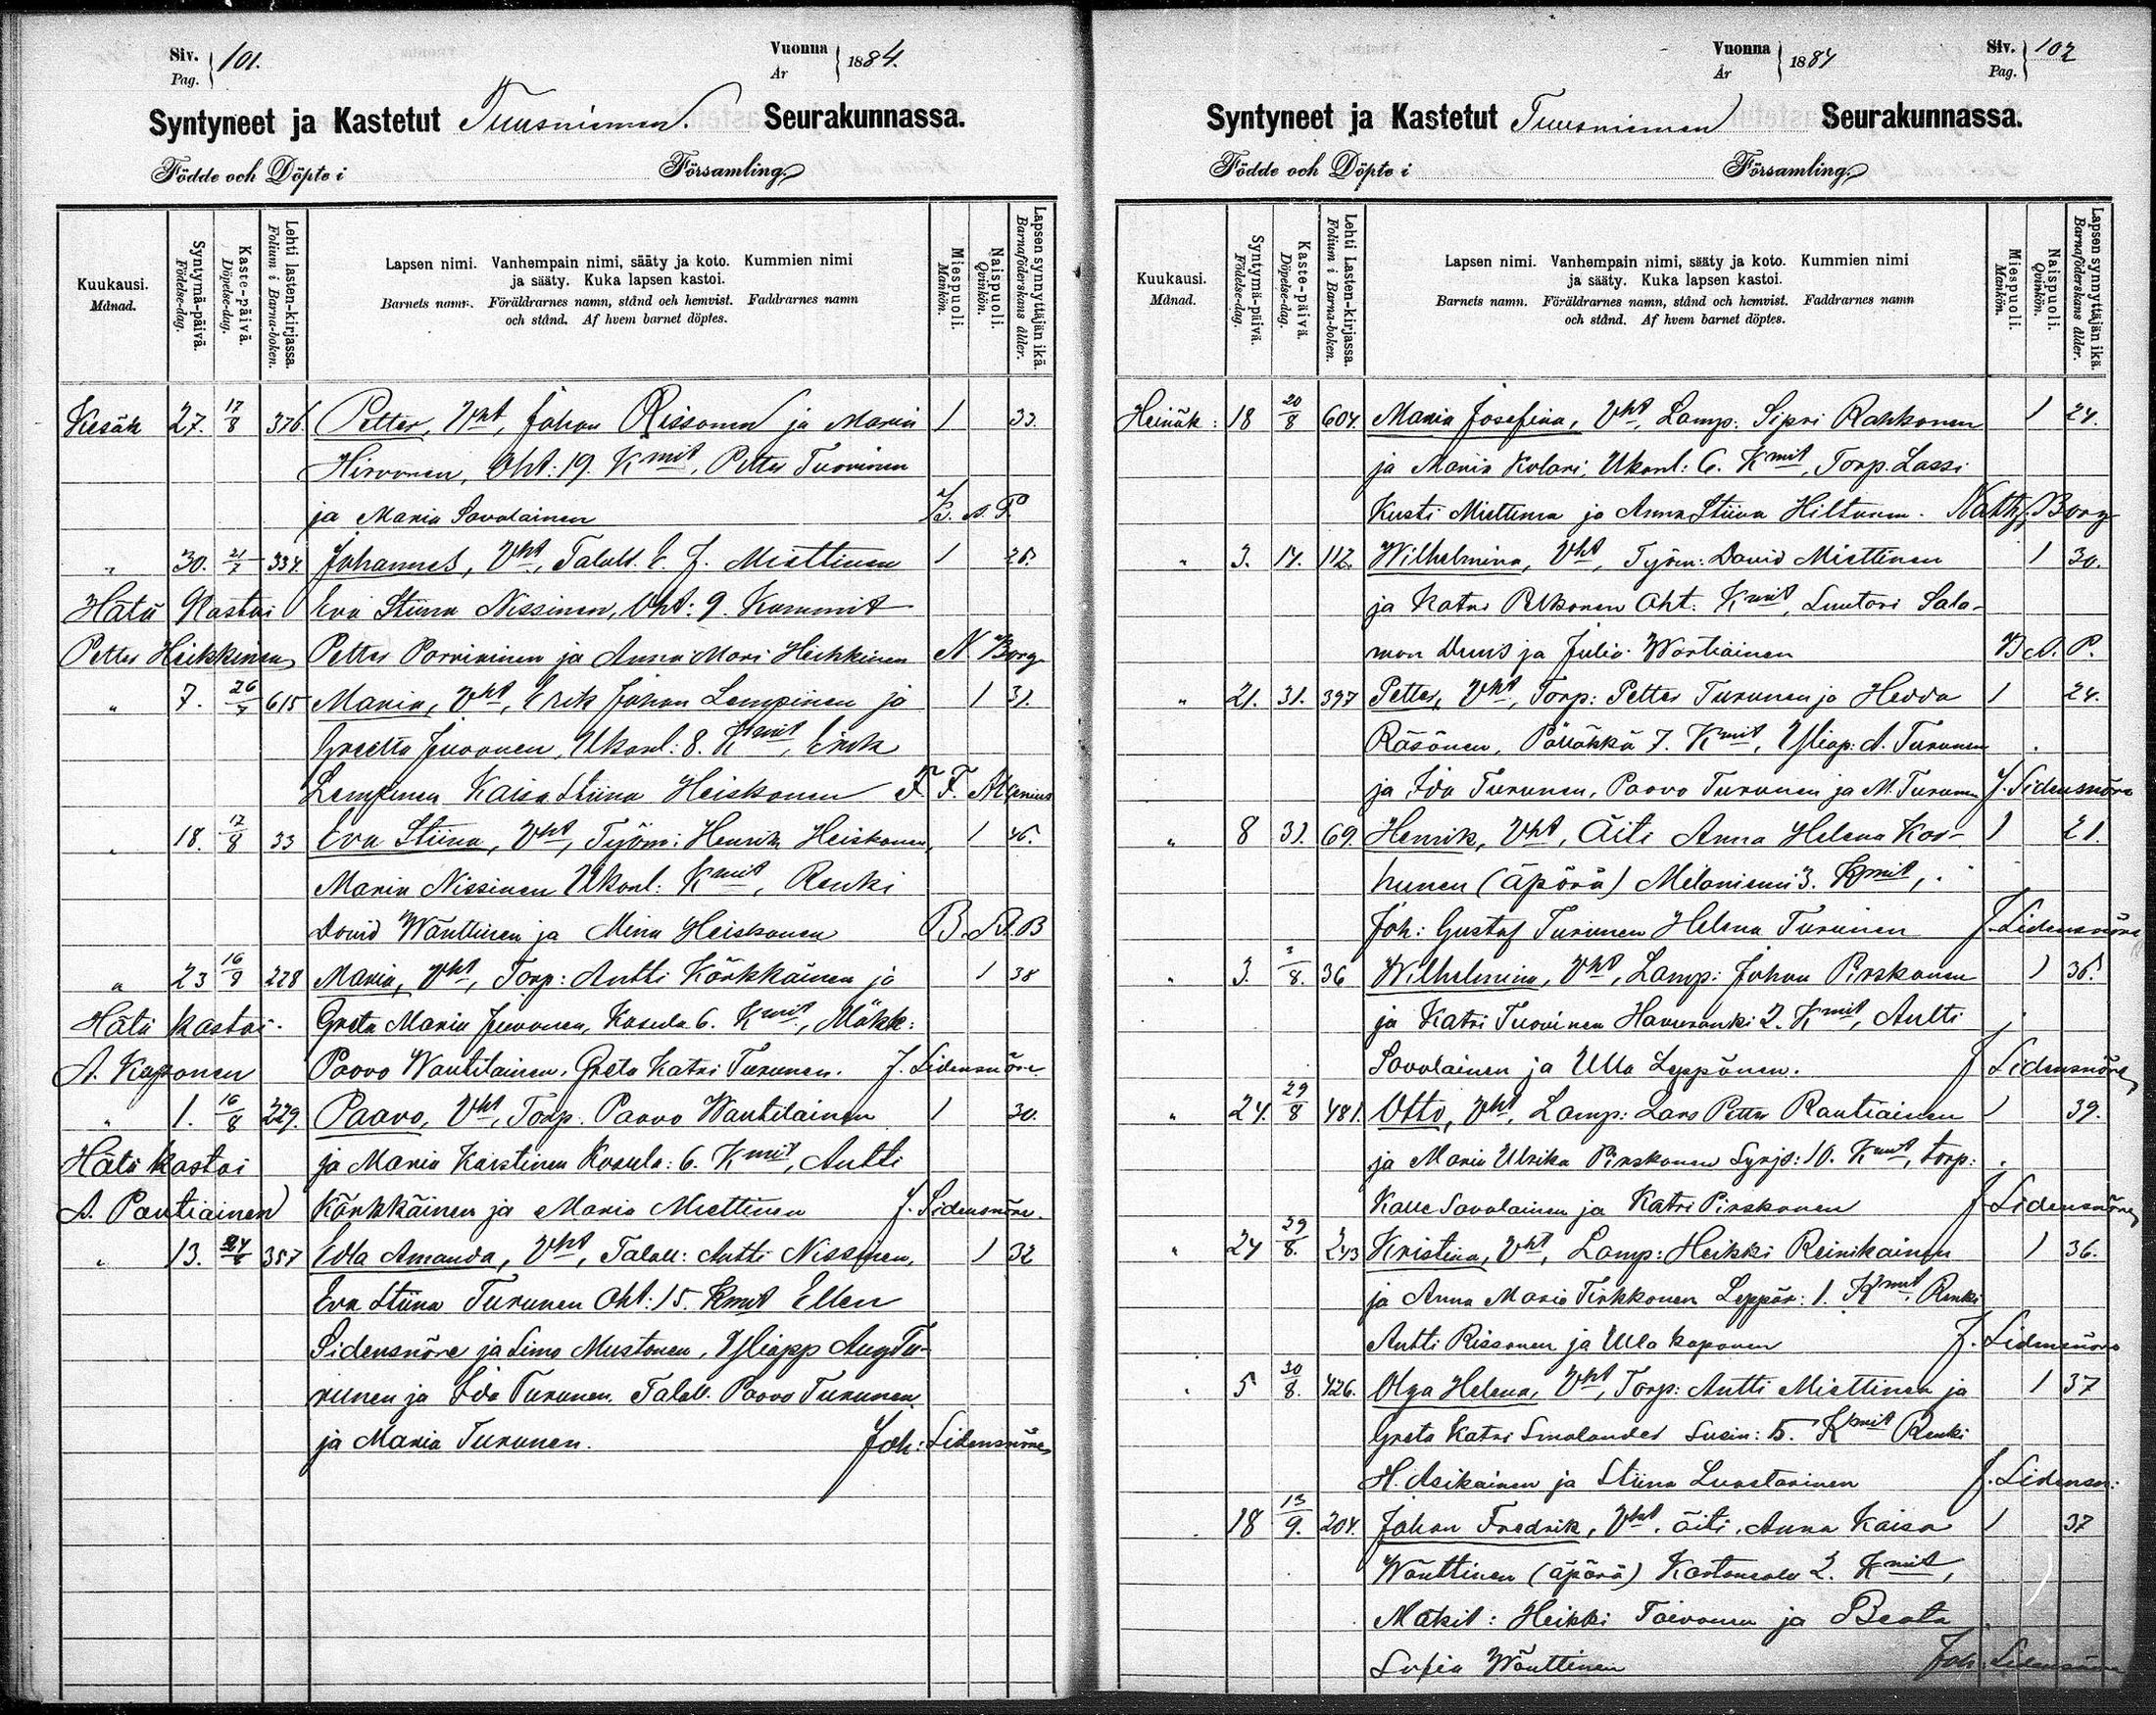 Siv. Pag. } 101.
Vuonna År } 1884.
Syntyneet ja Kastetut Tuusniemen Seurakunnassa.
Födde och Döpte i Församling
Kuukausi. Månad.
Syntymä-päivä. Födelse-dag.
Kaste-päivä. Döpelse-dag.
Lehti lasten-kirjassa. Folium i Barna-boken.
Lapsen nimi. Vanhempain nimi, sääty ja koto. Kummien nimi
ja sääty. Kuka lapsen kastoi.
Barnets namn. Föräldrarnes namn, stånd och hemvist. Faddrarnes namn
och stånd. Af hvem barnet döptes.
Miespuoli. Mankön.
Naispuoli. Qvinkön.
Lapsen synnyttäjän ikä. Barnaföderskans ålder.
Kesäk 27. 17/8 376 Petter, Vht, Johan Rissonen ja Maria 1 33.
Hirvonen, Oht: 19. Kmit, Petter Tuovinen
ja Maria Savolainen
" 30. 21/7 334. Johannes, Vht, Talall. E. J. Miettinen 1 26.
Hätä Kastoi Eva Stiina Nissinen, Oht: 9. Kummit
Petter Heikkinen Petter Parviainen ja Anna Mari Heikkinen N. Borg
" 7. 26/7 615 Maria, Vht, Erik Johan Lempinen ja 1 31.
Greetta Juvonen, Ukonl: 8. Kmit, Erik
Lempinen Kaisa Stiina Heiskonen F. F. Alfenius
" 18. 17/8 33 Eva Stiina, Vht, Työm: Henrik Heiskonen, 1 46.
Maria Nissinen Ukonl: Kmit, Renki
David Wänttinen ja Mina Heiskonen
" 23 16/8 228 Maria, Vht, Torp: Antti Kärkkäinen ja 1 38
Hätä kastoi. Greta Maria Juvonen, Kosula 6. Kmit, Mäkk:
A. Kaponen Paavo Wantilainen, Greta Katri Turunen. J. Sidensnöre
" 1. 16/8 229. Paavo, Vht, Torp. Paavo Wantilainen 1 30.
Hätä kastoi ja Maria Karstinen Kosula: 6. Kmit, Antti
A. Pantiainen Kärkkäinen ja Maria Miettinen J. Sidensnöre.
" 13. 357 Edla Amanda, Vht, Talall: Antti Nissinen, 1 32
Eva Stiina Turunen Oht: 15. Kmit Ellen
Sidensnöre ja Simo Mustonen, Yliopp Aug Tu-
runen ja Ida Turunen. Talall. Paavo Turunen,
ja Maria Turunen. Joh: Sidensnöre
Vuonna År } 1884
Siv. Pag. } 102
Syntyneet ja Kastetut Tuusniemen Seurakunnassa.
Födde och Döpte i Församling
Kuukausi. Månad.
Syntymä-päivä. Födelse-dag.
Kaste-päivä. Döpelse-dag.
Lehti Lasten-kirjassa. Folium i Barna-boken.
Lapsen nimi. Vanhempain nimi, sääty ja koto. Kummien nimi
ja sääty. Kuka lapsen kastoi.
Barnets namn. Föräldrarnes namn, stånd och hemvist. Faddrarnes namn
och stånd. Af hvem barnet döptes.
Miespuoli. Mankön.
Naispuoli. Qvinkön.
Lapsen synnyttäjän ikä. Barnaföderskans ålder.
Heinäk: 18 20/8 604. Maria Josefina, Vht, Lamp: Sipri Rahkonen 1 24.
ja Maria Kolari, Ukonl: 6. Kmit, Torp. Lassi
Kusti Miettinen ja Anna Stiina Hiltunen. Nath. Borg
" 3. 14. 112. Wilhelmina, Vht, Työm: David Miettinen 1 30.
ja Katri Pekonen Oht. Kmit, Suutari Salo-
mon Duus ja Julia Wartiainen
" 21. 31. 397 Petter, Vht, Torp: Petter Turunen ja Hedda 1 24.
Räsänen, Pöllähkä 7. Kmit, Yliop: A. Turunen
ja Ida Turunen, Paavo Turunen ja M. Turunen J. Sidensnöre
" 8 31. 69. Henrik, Vht, Äiti Anna Helena Kor- 1 21.
hunen (äpärä) Melaniemi 3. Kmit,
Joh: Gustaf Turunen Helena Turunen J. Sidensnöre
" 3. 36 Wilhelmina, Vht, Lamp: Johan Pirskonen 1 36.
ja Katri Tuovinen Havuranki 2. Kmit, Antti
Savolainen ja Ulla Leppänen. J Sidensnöre
" 24. 29/8 481. Otto, Vht, Lamp: Lars Petter Rautiainen 1 39.
ja Maria Ulrika Pirskonen Syrjs: 10. Kmit, torp:
Kalle Savolainen ja Katri Pirskonen J Sidensnöre
" 24 29/8. 243 Kristina, Vht, Lamp: Heikki Reinikainen 1 36.
ja Anna Maria Tirkkonen Leppär: 1. Kmit, Renki
Antti Rissonen ja Ulla Kaponen J. Sidensnöre
" 5 30/8. 426. Olga Helena, Vht, Torp: Antti Miettinen ja 1 37
Greta Katri Smolander Susin: 15. Kmit Renki
H. Asikainen ja Stiina Luostarinen J. Sidensn:
18 13/9. 204. Johan Fredrik, Vht. äiti. Anna Kaisa 1 37
Wänttinen (äpärä) Kartansalo 2. Kmit,
Mäkit: Heikki Toivonen ja Beata
Sofia Wänttinen Joh. Sidensnöre